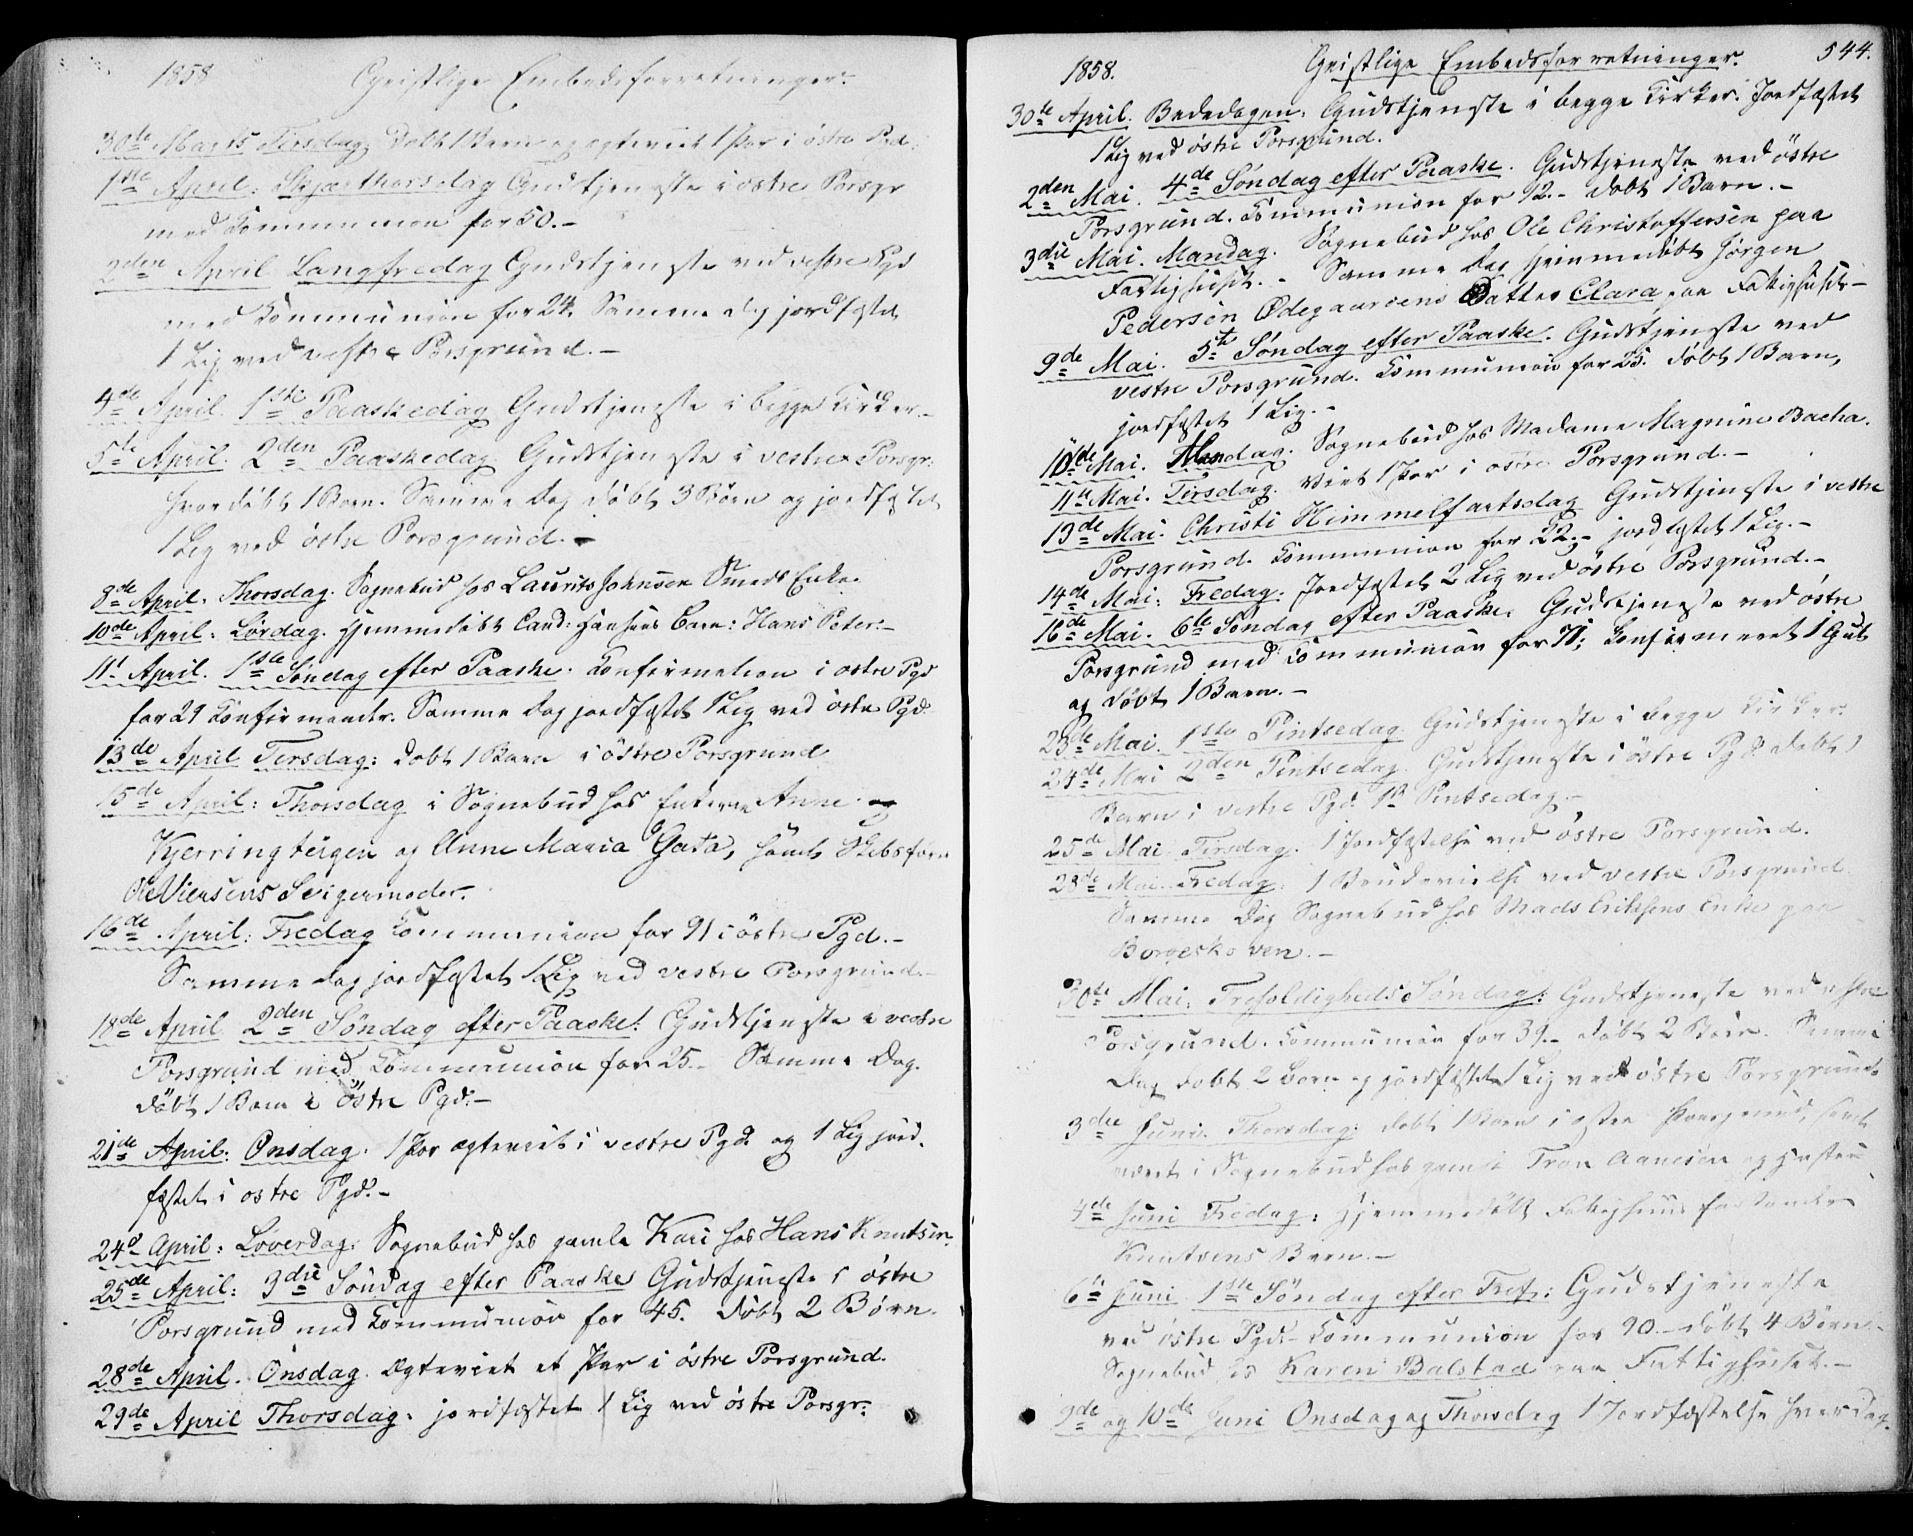 1858 Geistlige Embedsforretninger.
30te Marts Tirsdag. Døbt 1 Barn og ægteviet 1 Par i østre Pgd.
1ste April. Skjærthorsdag Gudstjeneste i østre Porsgr
med Communion for 50.-
2den April Langfredag Gudstjeneste ved vestre Pgd
med Communion for 24. Samme Dag jordfæstet
1 Lig ved vestre Porsgrund.-
4de April. 1ste Paaskedag Gudstjeneste i begge Kirker.-
5te April. 2den Paaskedag. Gudstjeneste i vestre Porsgr:
hvor døbt 1 Barn. Samme Dag døbt 3 Børn og jordfæstet
1 Lig ved østre Porsgrund.-
8de April. Thorsdag. Sognebud hos Laurits Johnsen Smeds Enke.
10de April. Lørdag. Hjemmedøbt Cand: Hansens Barn: Hans Peter.-
11t April. 1ste Søndag efter Paaske. Confirmation i østre Pgd
for 29 Confirmander. Samme Dag jordfæstet 1 Lig ved østre Pgd.
13de April Tirsdag: døbt 1 Barn i østre Porsgrund
15de April: Thorsdag i Sognebud hos Enkerne Anne
Kjerringteigen og Anne Maria Gata, samt Skibsfører
Svigermoder.
16de April: Fredag Communion for 91 i østre Pgd.-
Samme Dag jordfæstet 1 Lig ved vestre Porsgrund.-
18de April 2den Søndag efter Paaske! Gudstjeneste i vestre
Porsgrund med Communion for 25.- Samme Dag
døbt 1 Barn i østre Pgd.-
21de April: Onsdag. 1 Par ægteviet i vestre Pgd. og 1 Lig jord-
fæstet i østre Pgd.-
24de April: Løverdag: Sognebud hos gamle Kari hos Hans Knutsen.
25de April: 3die Søndag efter Paaske Gudstjeneste i østre
Porsgrund med Communion for 45. døbt 2 Børn.
28de April. Onsdag. Ægteviet et Par i østre Porsgrund.
29de April Thorsdag. jordfæstet 1 Lig ved østre Porsgr:
1858. Geistlige Embedsforretninger. 544.
30te April. Bededagen. Gudstjeneste i begge Kirker. Jordfæstet
1 Lig ved østre Porsgrund.
2den Mai. 4de Søndag efter Paaske. Gudstjeneste ved østre
Porsgrund. Communion for 12.- døbt 1 Barn.-
3die Mai. Mandag. Sognebud hos Ole Christoffersen paa
Fattighuset.- Samme Dag hjemmedøbt Jørgen
Pedersen Ødegaardens Datter Clara paa Fattighuset.-
9de Mai. 5te Søndag efter Paaske. Gudstjeneste ved
vestre Porsgrund. Communion for 25. døbt 1 Barn,
jordfæstet 1 Lig.-
10de Mai. Mandag. Sognebud hos Madame Magnine Bacha.
11te Mai. Tirsdag. viet 1 Par i østre Porsgrund.-
13de Mai. Christi Himmelfartsdag Gudstjeneste i vestre
Porsgrund. Communion for 22.- jordfæstet 1 Lig.-
14de Mai: Fredag: Jordfæstet 2 Lig ved østre Porsgrund.-
16de Mai. 6te Søndag efter Paaske. Gudstjeneste ved østre
Porsgrund med Communion for 71; Confirmeret 1 Gut
og døbt 1 Barn.-
23de Mai. 1ste Pintsedag Gudstjeneste i begge Kirker.
24de Mai 2den Pintsedag. Gudstjeneste i østre Pgd døbt 1
Barn i vestre Pgd. Pintsedag.-
25de Mai Tirsdag. 1 Jordfæstelse ved østre Porsgrund.
28de Mai. Fredag: 1 Brudevielse ved vestre Porsgrund.
Samme Dag Sognebud hos Mads Eriksens Enke paa
Borgeskoven.-
30te Mai: Trefoldigheds Søndag: Gudstjeneste ved vestre
Porsgrund. Communion for 39.- døbt 2 Børn. Samme
Dag døbt 2 Børn og jordfæstet 1 Lig ved østre Porsgrund.
3die Juni. Thorsdag: døbt 1 Barn i østre Porsgrund, samt
været i Sognebud hos gamle Aanesen og
4de Juni Fredag: Hjemmedøbt Fattighuus forstander
Knutsens Barn.-
6te Juni 1ste Søndag efter Tref: Gudstjeneste
ved østre Pgd.- Communion for 90.- døbt 4 Børn.-
Sognebud hos Karen Balstad paa Fattighuset.-
9de og 10de Juni Onsdag og Thorsdag 1 Jordfæstelse hver Dag.